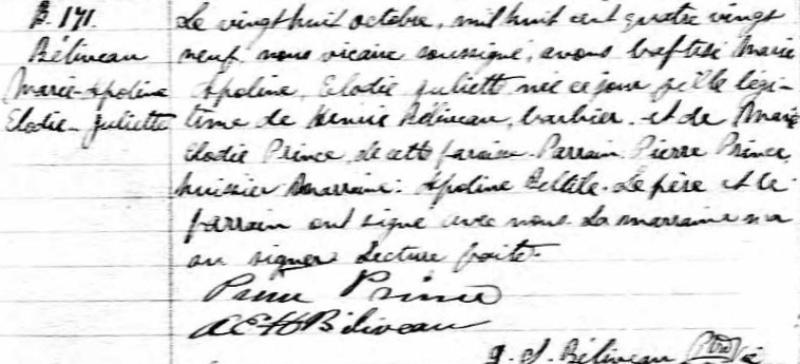 B. 171.
Béliveau
Marie-Apoline
Elodie-Juliette
Le vingt huit octobre, mil huit cent quatre vingt
neuf nous vicaire soussigné, avons baptisé Marie
Apoline, Elodie Juliette née ce jour fille légi-
time de Henrie Béliveau, barbier, et de Marie
Elodie Prince, de cette paroisse. Parrain: Pierre Prince,
huissier Marraine: Apoline Bellile. Le père et le
parrain ont signé avec nous. La marraine n'a
su signer. Lecture faite.
Pierre Prince
A E H Béliveau
Béliveau Ptre